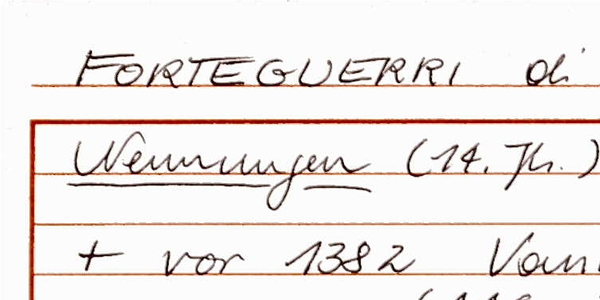 FORTEGUERRI di
Nennungen (14. Jh.)
+ vor 1382 Vanni